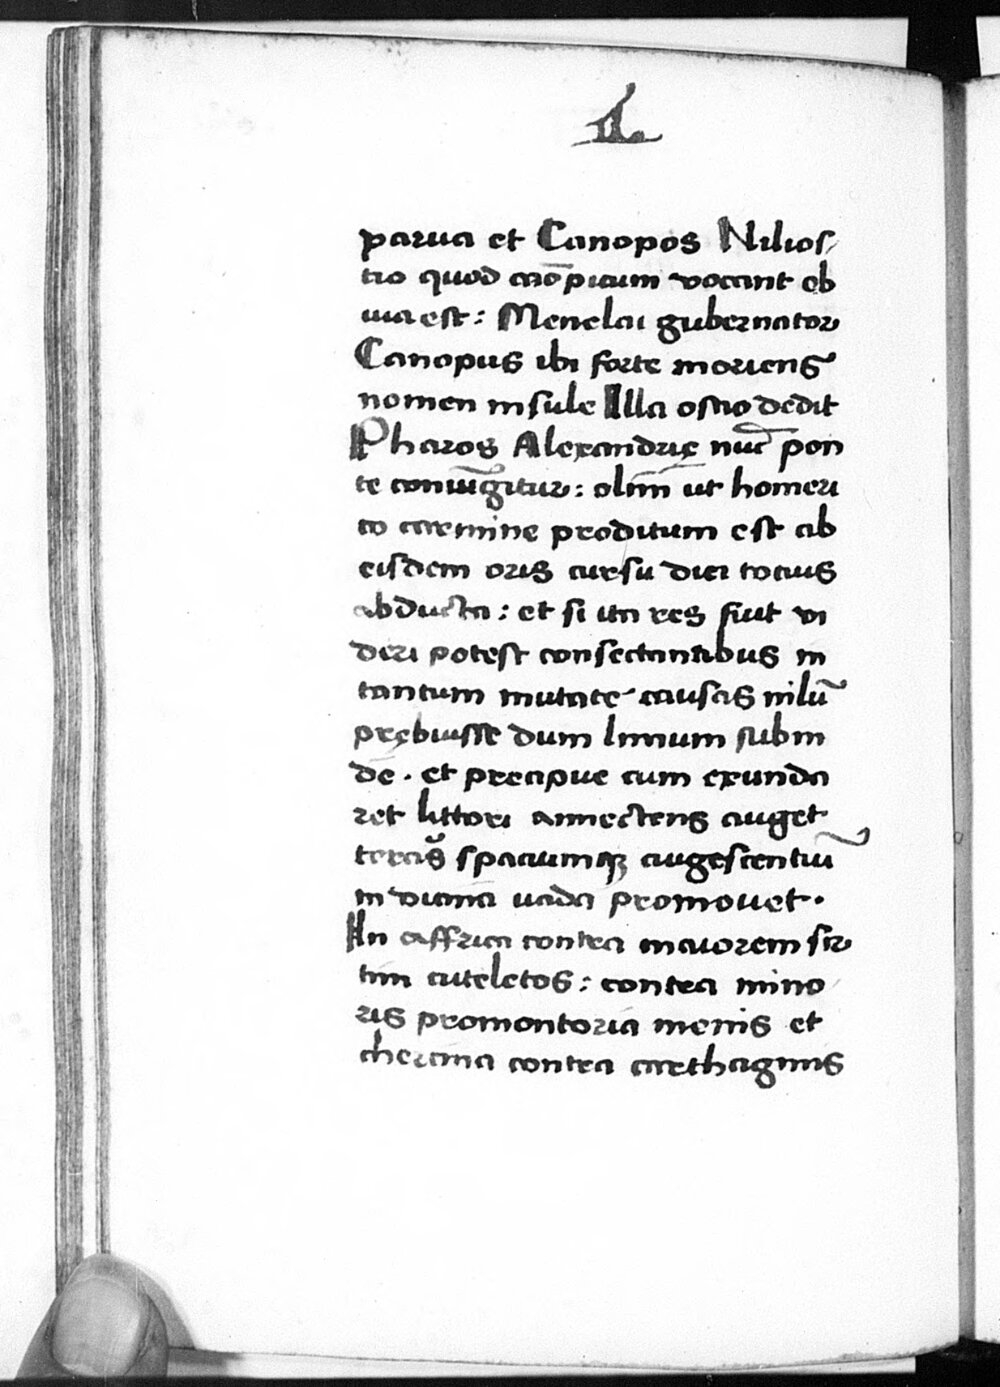 parua et Canopos Nilios
tio quod cano̅picum vocant ob
uia est: Menelai gubernator
Canopus ibi forte moriens
nomen insule Illa ostio dedit
Pharos Alexandrię nuc̅ pon
te conuu̅gitur: olim ut homeri
co carmine proditum est ab
eisdem oris cursu diei tocius
abducta: et si ita res fiut vi
deri potest consectantibus in
tantum mutate causas nilu̅
prębuisse dum limum subin
de̅. et precipue cum exunda
ret littori annectens auget
spaciumqȝ augescentiu̅
in vicina uada promouet.
In affrica contra maiorem sir
tim euteletos: contra mino
ris promontoria menis et
chercina contra carthaginis